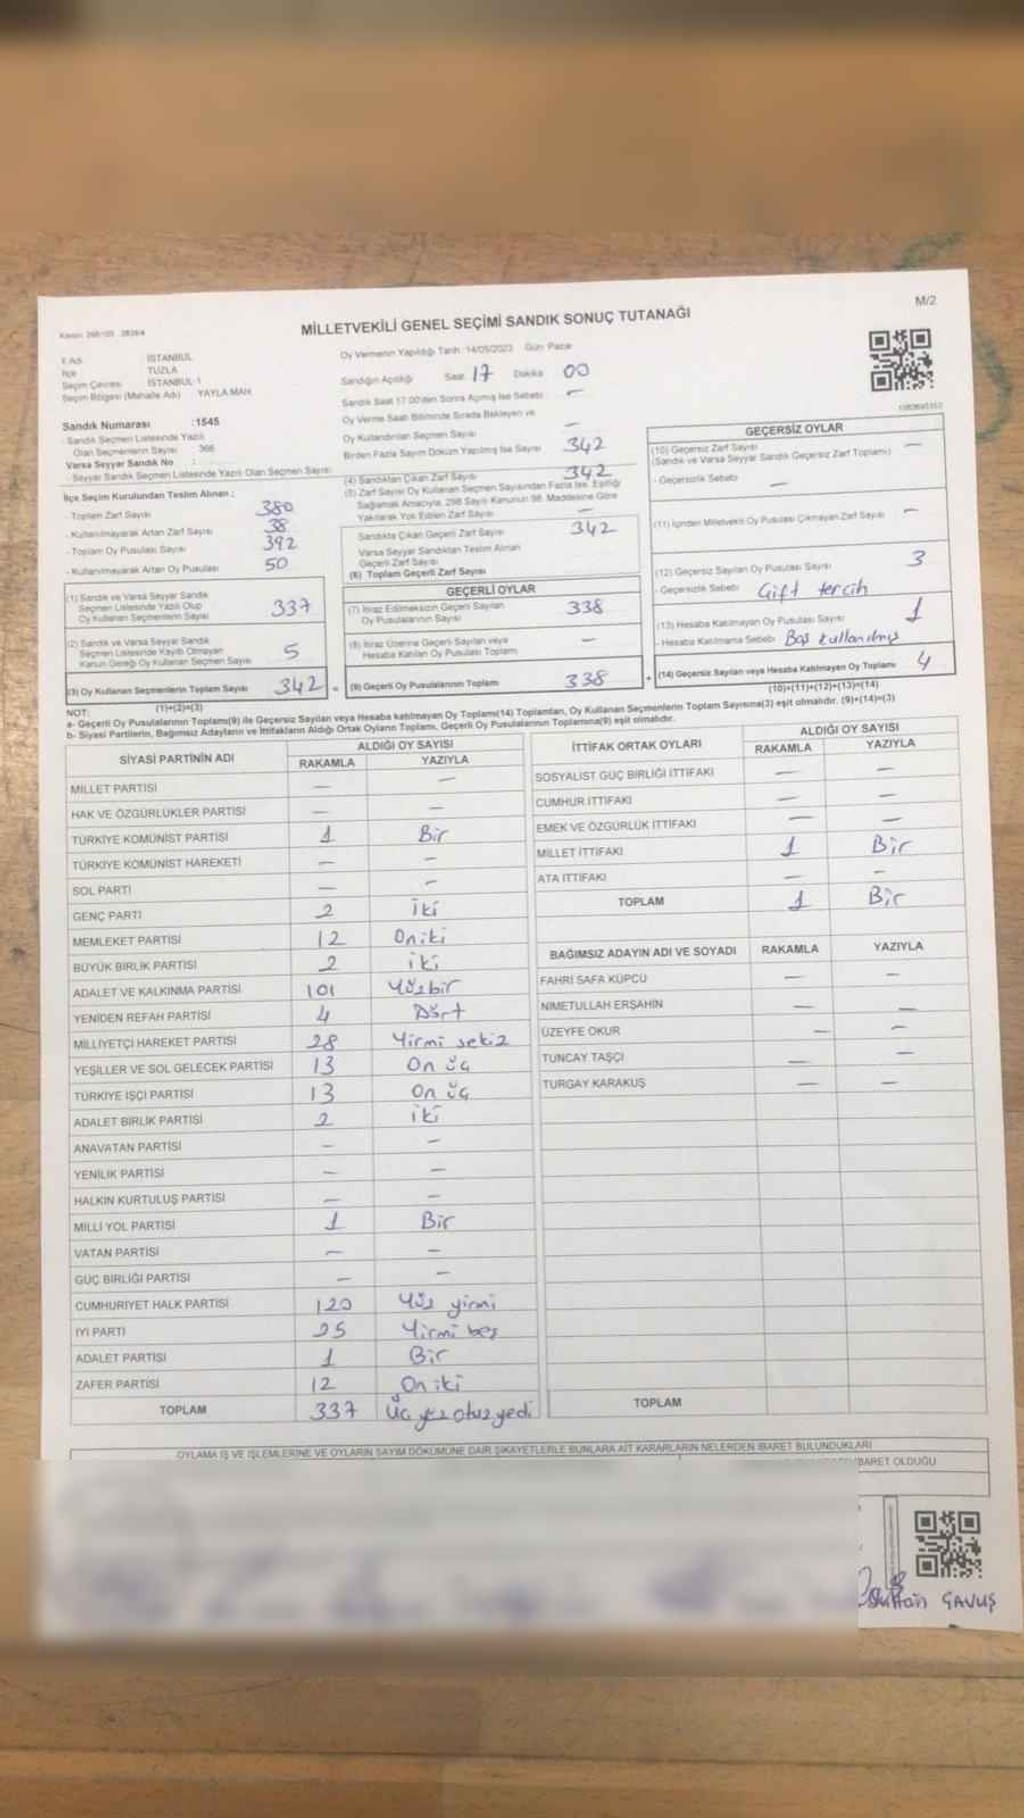 M/2
MİLLETVEKİLİ GENEL SEÇİMİ SANDIK SONUÇ TUTANAĞI
İl Adı : İSTANBUL
İlçe : TUZLA
Seçim Çevresi : İSTANBUL-1
Seçim Bölgesi (Mahalle Adı) YAYLA MAH.
Sandık Numarası :1545
- Sandık Seçmen Listesinde Yazılı
Olan Seçmenlerin Sayısı 366
Varsa Seyyar Sandık No :
Seyyar Sandık Seçmen Listesinde Yazılı Olan Seçmen Sayısı
İlçe Seçim Kurulundan Teslim Alınan :
- Toplam Zarf Sayısı 380
- Kullanılmayarak Artan Zarf Sayısı 38
- Toplam Oy Pusulası Sayısı 392
- Kullanılmayarak Artan Oy Pusulası 50
(1) Sandık ve Varsa Seyyar Sandık
Seçmen Listesinde Yazılı Olup
Oy Kullanan Seçmenlerin Sayısı 337
(2) Sandık ve Varsa Seyyar Sandık
Seçmen Listesinde Kayıtlı Olmayan
Kanun Gereği Oy Kullanan Seçmen Sayısı 5
(3) Oy Kullanan Seçmenlerin Toplam Sayısı 342 =
(1)+(2)=(3)
Oy Vermenin Yapıldığı Tarih :14/05/2023 Gün: Pazar
Sandığın Açıldığı Saat 17 Dakika 00
Sandık Saat 17.00'den Sonra Açılmış İse Sebebi —
Oy Verme Saati Bitiminde Sırada Bekleyen ve
Oy Kullandırılan Seçmen Sayısı —
Birden Fazla Sayım Döküm Yapılmış İse Sayısı 342
(4) Sandıktan Çıkan Zarf Sayısı 342
(5) Zarf Sayısı Oy Kullanan Seçmen Sayısından Fazla İse, Eşitliği
Sağlamak Amacıyla, 298 Sayılı Kanunun 98. Maddesine Göre
Yakılarak Yok Edilen Zarf Sayısı —
Sandıkta Çıkan Geçerli Zarf Sayısı 342
Varsa Seyyar Sandıktan Teslim Alınan
Geçerli Zarf Sayısı
(6) Toplam Geçerli Zarf Sayısı
GEÇERLİ OYLAR
(7) İtiraz Edilmeksizin Geçerli Sayılan
Oy Pusulalarının Sayısı 338
(8) İtiraz Üzerine Geçerli Sayılan veya
Hesaba Katılan Oy Pusulası Toplamı —
(9) Geçerli Oy Pusulalarının Toplamı 338 +
GEÇERSİZ OYLAR
(10) Geçersiz Zarf Sayısı —
(Sandık ve Varsa Seyyar Sandık Geçersiz Zarf Toplamı)
- Geçersizlik Sebebi —
(11) İçinden Milletvekili Oy Pusulası Çıkmayan Zarf Sayısı —
(12) Geçersiz Sayılan Oy Pusulası Sayısı 3
- Geçersizlik Sebebi Çift tercih
(13) Hesaba Katılmayan Oy Pusulası Sayısı 1
- Hesaba Katılmama Sebebi Boş kullanılmış
(14) Geçersiz Sayılan veya Hesaba Katılmayan Oy Toplamı 4
(10)+(11)+(12)+(13)=(14)
NOT:
a- Geçerli Oy Pusulalarının Toplamı(9) ile Geçersiz Sayılan veya Hesaba katılmayan Oy Toplamı(14) Toplamları, Oy Kullanan Seçmenlerin Toplam Sayısına(3) eşit olmalıdır. (9)+(14)=(3)
b- Siyasi Partilerin, Bağımsız Adayların ve İttifakların Aldığı Ortak Oyların Toplamı, Geçerli Oy Pusulalarının Toplamına(9) eşit olmalıdır.
SİYASİ PARTİNİN ADI ALDIĞI OY SAYISI
RAKAMLA YAZIYLA
MİLLET PARTİSİ — —
HAK VE ÖZGÜRLÜKLER PARTİSİ — —
TÜRKİYE KOMÜNİST PARTİSİ 1 Bir
TÜRKİYE KOMÜNİST HAREKETİ — —
SOL PARTİ — —
GENÇ PARTİ 2 İki
MEMLEKET PARTİSİ 12 Oniki
BÜYÜK BİRLİK PARTİSİ 2 iki
ADALET VE KALKINMA PARTİSİ 101 Yüzbir
YENİDEN REFAH PARTİSİ 4 Dört
MİLLİYETÇİ HAREKET PARTİSİ 28 Yirmi sekiz
YEŞİLLER VE SOL GELECEK PARTİSİ 13 On üç
TÜRKİYE İŞÇİ PARTİSİ 13 On üç
ADALET BİRLİK PARTİSİ 2 iki
ANAVATAN PARTİSİ — —
YENİLİK PARTİSİ — —
HALKIN KURTULUŞ PARTİSİ — —
MİLLİ YOL PARTİSİ 1 Bir
VATAN PARTİSİ — —
GÜÇ BİRLİĞİ PARTİSİ — —
CUMHURİYET HALK PARTİSİ 120 Yüz yirmi
İYİ PARTİ 25 Yirmi beş
ADALET PARTİSİ 1 Bir
ZAFER PARTİSİ 12 On iki
TOPLAM 337 Üç yüz otuz yedi
İTTİFAK ORTAK OYLARI ALDIĞI OY SAYISI
RAKAMLA YAZIYLA
SOSYALİST GÜÇ BİRLİĞİ İTTİFAKI — —
CUMHUR İTTİFAKI — —
EMEK VE ÖZGÜRLÜK İTTİFAKI — —
MİLLET İTTİFAKI 1 Bir
ATA İTTİFAKI — —
TOPLAM 1 Bir
BAĞIMSIZ ADAYIN ADI VE SOYADI RAKAMLA YAZIYLA
FAHRİ SAFA KÜPCÜ — —
NİMETULLAH ERŞAHİN — —
ÜZEYFE OKUR — —
TUNCAY TAŞÇI — —
TURGAY KARAKUŞ — —
TOPLAM
OYLAMA İŞ VE İŞLEMLERİNE VE OYLARIN SAYIM DÖKÜMÜNE DAİR ŞİKAYETLERLE BUNLARA AİT KARARLARIN NELERDEN İBARET BULUNDUKLARI
İBARET OLDUĞU
ÇAVUŞ